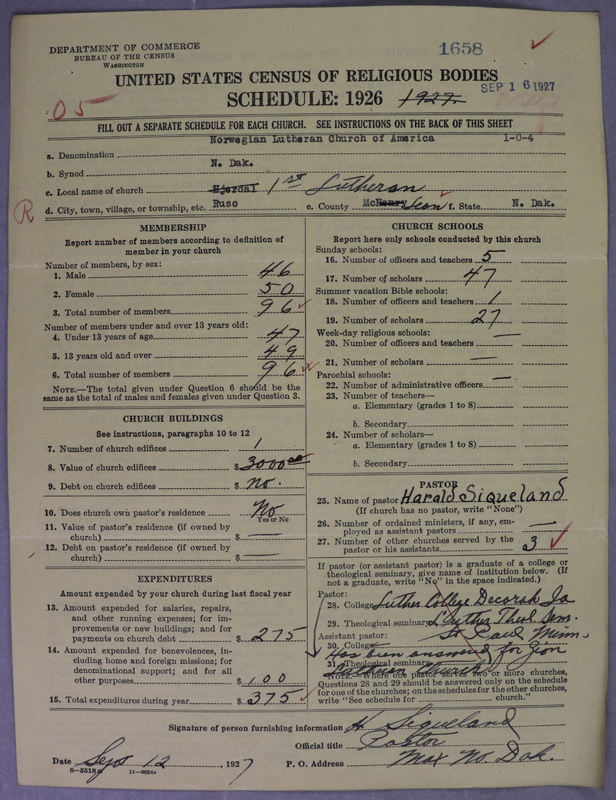 DEPARTMENT OF COMMERCE
BUREAU OF THE CENSUS
WASHINGTON
1658
UNITED STATES CENSUS OF RELIGIOUS BODIES
SCHEDULE: 1926 1927.
SEP 16 1927
05
FILL OUT A SEPARATE SCHEDULE FOR EACH CHURCH. SEE INSTRUCTIONS ON THE BACK OF THIS SHEET
a. Denomination Norwegian Lutheran Church of America 1-0-4
b. Synod N. Dak.
c. Local name of church Hjerdal 1st Lutheran
R
d. City, town, village, or township, etc. Ruso e. County McHenry Lean f. State N. Dak.
MEMBERSHIP
Report number of members according to definition of
member in your church
Number of members, by sex:
1. Male 46
2. Female 50
3. Total number of members 96
Number of members under and over 13 years old:
4. Under 13 years of age 47
5. 13 years old and over 49
6. Total number of members 96
NOTE.—The total given under Question 6 should be the
same as the total of males and females given under Question 3.
CHURCH BUILDINGS
See instructions, paragraphs 10 to 12
7. Number of church edifices 1
8. Value of church edifices $ 3000 00
9. Debt on church edifices $ No.
10. Does church own pastor's residence No
Yes or No
11. Value of pastor's residence (if owned by
church) $ —
12. Debt on pastor's residence (if owned by
church) $ —
EXPENDITURES
Amount expended by your church during last fiscal year
13. Amount expended for salaries, repairs,
and other running expenses; for im-
provements or new buildings; and for
payments on church debt $ 275
14. Amount expended for benevolences, in-
cluding home and foreign missions; for
denominational support; and for all
other purposes $ 100
15. Total expenditures during year $ 375
CHURCH SCHOOLS
Report here only schools conducted by this church
Sunday schools:
16. Number of officers and teachers 5
17. Number of scholars 47
Summer vacation Bible schools:
18. Number of officers and teachers 1
19. Number of scholars 27
Week-day religious schools:
20. Number of officers and teachers —
21. Number of scholars —
Parochial schools:
22. Number of administrative officers —
23. Number of teachers—
a. Elementary (grades 1 to 8)
b. Secondary
24. Number of scholars—
a. Elementary (grades 1 to 8)
b. Secondary
PASTOR
25. Name of pastor Harald Siqueland
(If church has no pastor, write "None")
26. Number of ordained ministers, if any, em-
ployed as assistant pastors —
27. Number of other churches served by the
pastor or his assistants 3
If pastor (or assistant pastor) is a graduate of a college or
theological seminary, give name of institution below. (If
not a graduate, write "No" in the space indicated.)
Pastor:
28. College Luther College Decorah Ia
29. Theological seminary Luther Theol Sem.
Assistant pastor: St Paul Minn.
30. College
Has been answered for Zion
31. Theological seminary
Lutheran Church
NOTE.—Where one pastor serves two or more churches,
Questions 28 and 29 should be answered only on the schedule
for one of the churches; on the schedules for the other churches,
write "See schedule for church."
Signature of person furnishing information H Siqueland
Official title Pastor
Date Sept 12, 1927 P. O. Address Max No. Dak.
8—5518a 11—9054a